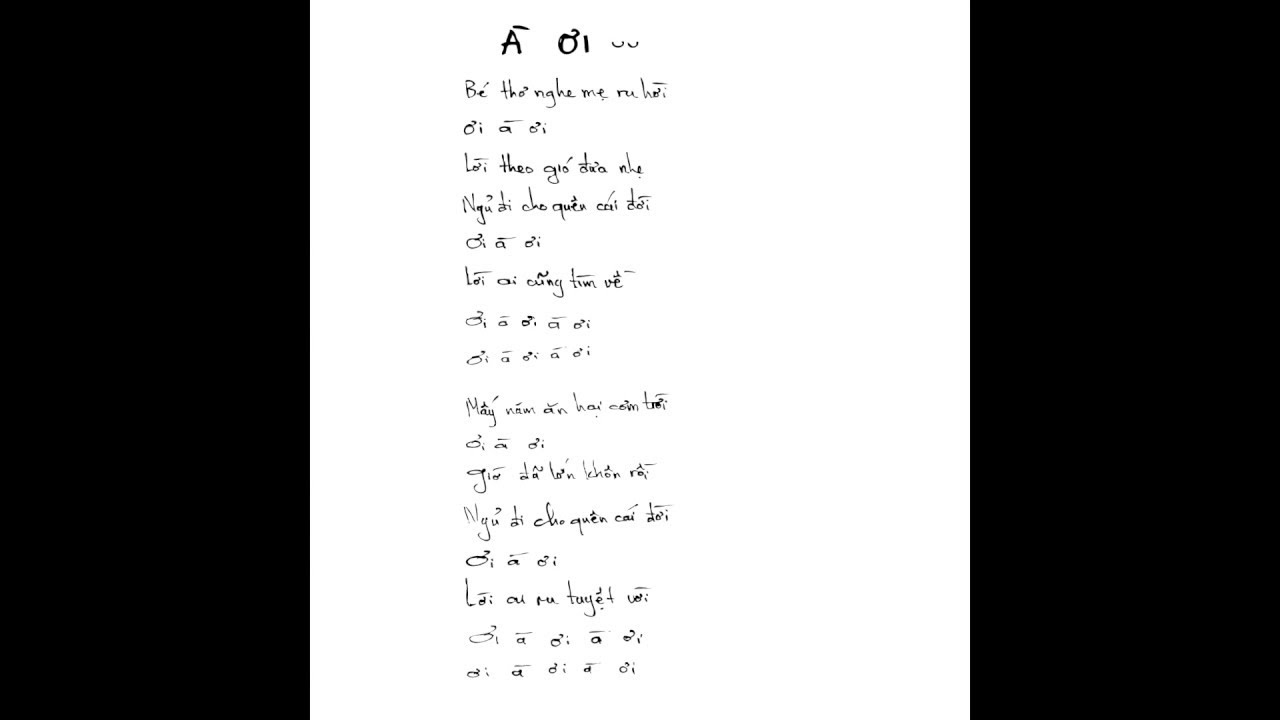 À ơi
Bé thơ nghe mẹ ru hời
ơi à ơi
Lời theo gió đưa nhẹ
Ngủ đi cho quên cái đời
Ơi à ơi
Lời ai cũng tìm về
Ơi à ơi à ơi
Ơi à ơi à ơi
Mấy năm ăn hại cơm trời
Ơi à ơi
Giờ đã lớn khôn rồi
Ngủ đi cho quên cái đời
Ơi à ơi
Lời ai ru tuyệt vời
Ơi à ơi à ơi
ơi à ơi à ơi